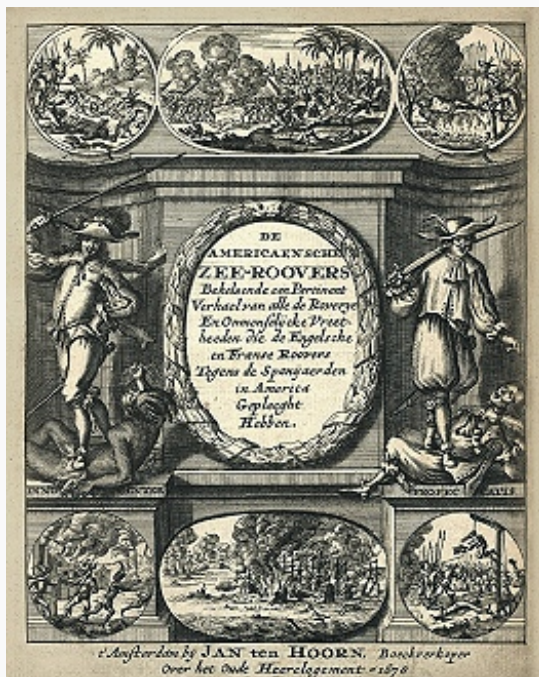 DE
AMERICAENSCHE
ZEE-ROOVERS
Behelsende een Pertinent
Verhael van alle de Roverye
En Onmenselijcke Vreet-
heeden die de Engelsche
en Franse Roovers
Tegens de Spanjaerden
in America
Gepleeght
Hebben.
t'Amsterdam by JAN ten HOORN, Boeckverkoper
Over het Oude Heerelogement. 1678